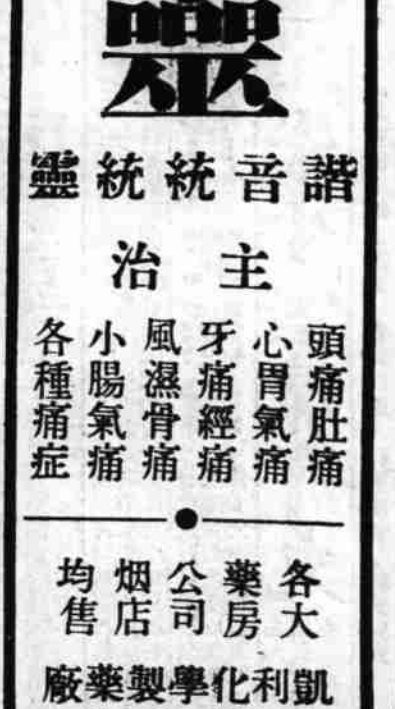 靈
諧音統統靈
主治
頭痛肚痛
心胃氣痛
牙痛經痛
風濕骨痛
小腸氣痛
各種痛症
各大
藥房
公司
烟店
均售
凱利化學製藥廠